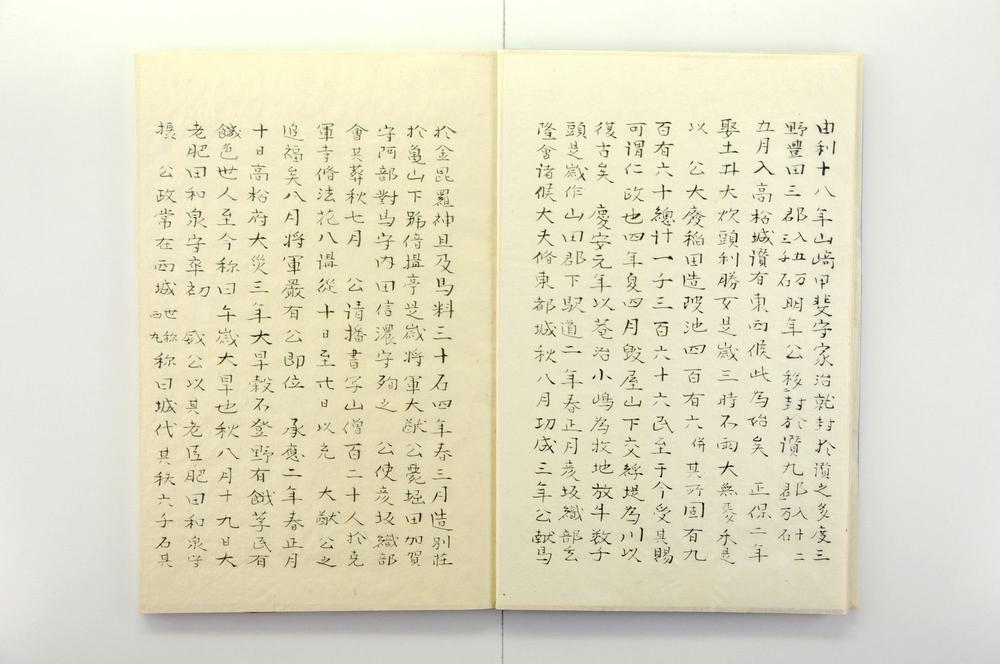 由利十八年山﨑甲斐守家治就封於讚之多度三
野豊田三郡入五万三千石明年公移封於讚九郡入十二万石
五月入高松城讚有東西候此為始矣 正保二年
娶土井大炊頭利勝女是歳三時不雨大無麥禾是
以 公大廢稲田造陂池四百有六併其所固有九
百有六十總計一千三百六十六民至于今受其賜
可謂仁政也四年夏四月毀屋山下交綍堤為川以
復古矣 慶安元年以菴治小嶋為牧地放牛数千
頭是歳作山田郡下駅道二年春正月彦坂織部玄
隆會諸候大夫脩東都城秋八月功成三年公献馬
於金毘羅神且及馬料三十石四年春三月造別莊
於亀山下號偣搵亭是歳将軍大猷公薨堀田加賀
守阿部對馬守内田信濃守殉之 公使彦坂織部
會其葬秋七月 公請播書写山僧百二十人於堯
軍寺脩法花八講從十日至廿日以充 大猷公之
追福矣八月将軍嚴有公即位 承應二年春正月
十日高松府大災三年大旱穀不登野有餓莩民有
饑色世人至今称曰午歳大旱也秋八月十九日大
老肥田和泉守卒初 威公以其老臣肥田和泉守
摄 公政常在西城世称西丸称曰城代其秩六千石其